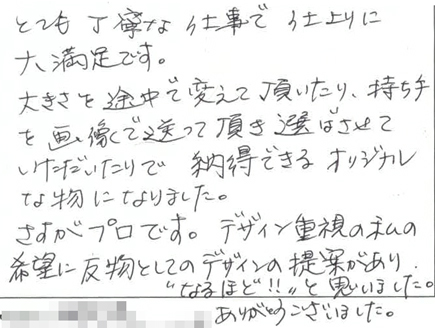 とても丁寧な仕事で仕上りに
大満足です。
大きさを途中で変えて頂いたり、持ち手
を画像で送って頂き選ばさせて
いただいたりで 納得できるオリジナル
な物になりました。
さすがプロです。デザイン重視の私の
希望に反物としてのデザインの提案があり
"なるほど!!"と思いました。
ありがとうございました。